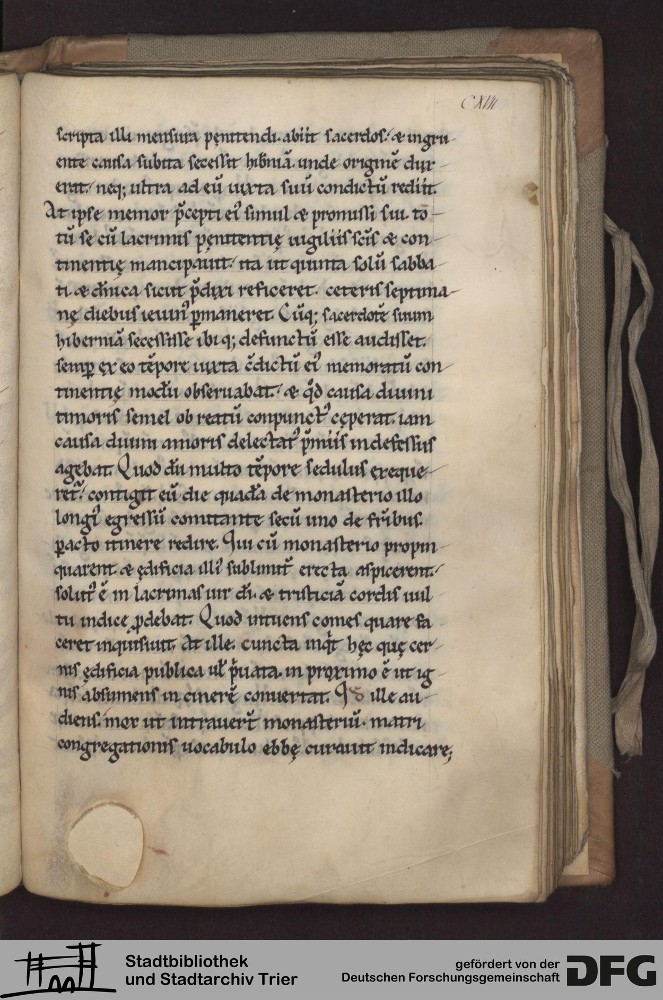 CXVII
scripta illi mensura pęnitendi. abiit sacerdos. & ingru-
ente causa subita secessit hiƀniā. unde originē dux-
erat. neq; ultra ad eū iuxta suū condictū rediit.
At ipse memor p̄cepti ei' simul & promissi sui. to-
tū se cū lacrimis pęnitentię uigiliis sc̄is & con-
tinentię mancipauit. ita ut quinta solū sabba-
ti & dn̄ica sicut p̄dixi reficeret. ceteris septima-
nę diebus ieiun' ꝑmaneret. Cūq; sacerdotē suum
hiberniā secessisse ibiq; defunctū esse audisset.
semꝑ ex eo tēpore iuxta c̄dictū ei' memoratū con-
tinentię modū obseruabat. & qd̄ causa diuini
timoris semel ob reatū conpunct' cęperat. iam
causa diuini amoris delectat' p̄miis indefessus
agebat. Quod dū multo tēpore sedulus exeque-
ret'. contigit eū die quadā de monasterio illo
longi' egressū comitante secū uno de fr̄ibus.
ꝑacto itinere redire. Qui cū monasterio propin-
quarent. & ędificia illi' sublimit̄ erecta aspicerent.
solut' ē in lacrimas uir dī. & tristiciā cordis uul
tu indice ꝓdebat. Quod intuens comes quare fa
ceret inquisiuit. At ille. cuncta inqt̄ hęc quę cer-
nis ędificia publica ul̄ p̄uata. in proximo ē ut ig-
nis absumens in cinerē conuertat. Qd ille au-
diens. mox ut intrauer̄t monasteriū. matri
congregationis uocabulo ebbę curauit indicare;
Stadtbibliothek
und Stadtarchiv Trier
gefördert von der
Deutschen Forschungsgemeinschaft
DFG